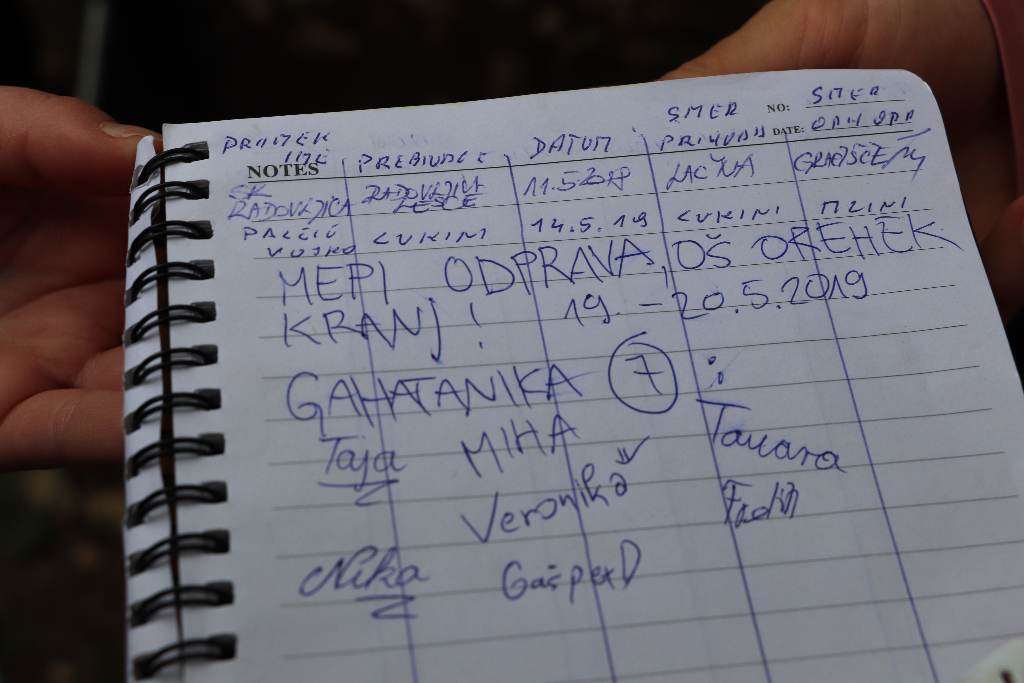 PRIIMEK IME PREBIVALIŠČE DATUM SMER PRIHODA SMER ODHODA
NOTES NO: DATE:
SK RADOVLJICA RADOVLJICA LESCE 11.5.2019 LAČNA
VOJKO LUKINI 14.5.19 LUKINI MLINI
MEPI ODPRAVA, OŠ OREHEK
KRANJ! 19. - 20.5.2019
GAHATANIKA 7 :
Taja MIHA Tamara
Veronika
Nika GašperD